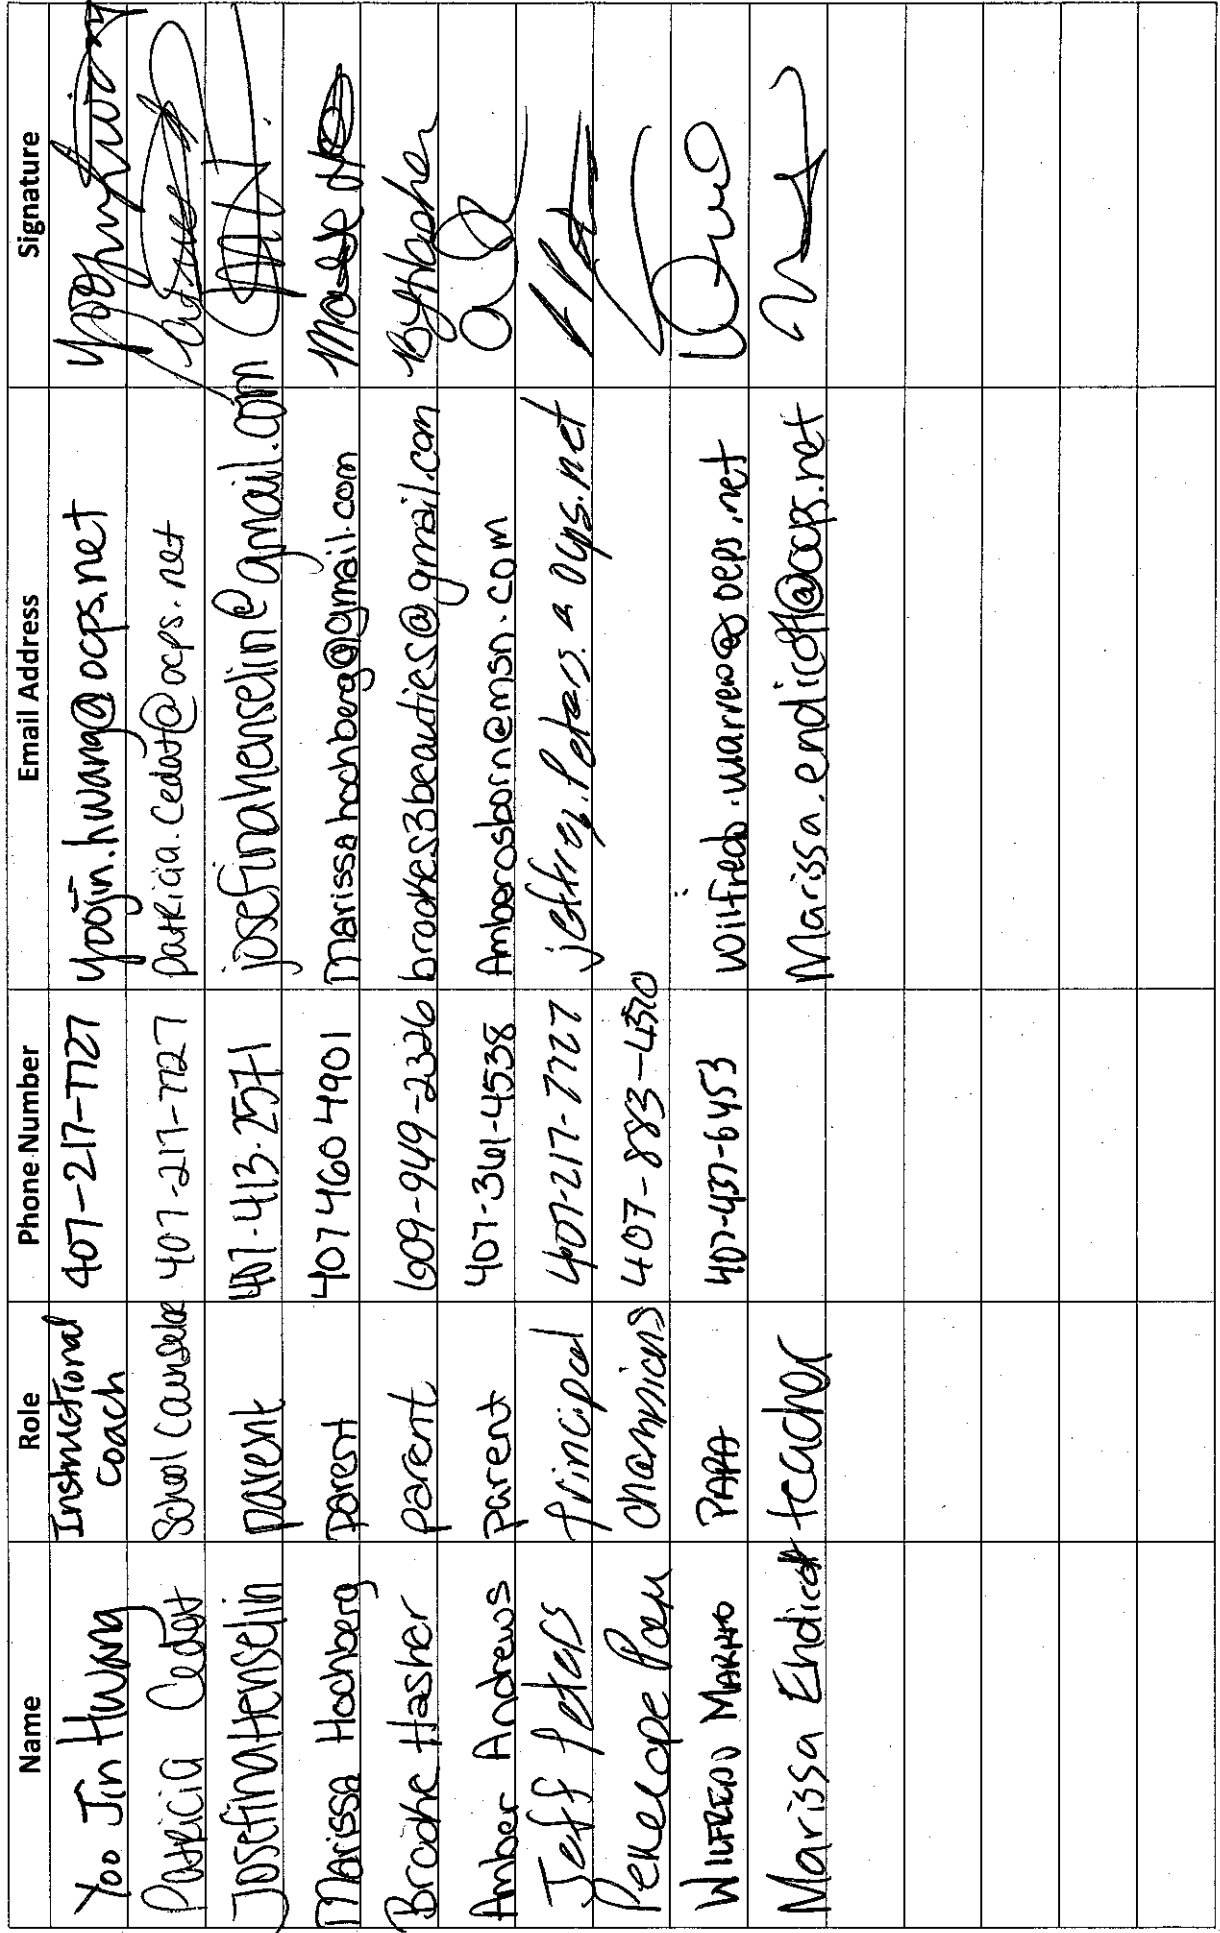 Name Role Phone Number Email Address Signature
Yoo Jin Hwang Instructional Coach 407-217-7727 yoojin.hwang@ocps.net
Patricia Cedat School Counselor 407-217-7727 patricia.cedat@ocps.net
Josefina Henselin parent 407-413-2571 josefinahenselin@gmail.com
Marissa Hochberg parent 407 460 4901 marissahochberg@gmail.com
Brooke Hasher parent 609-949-2326 brookes3beauties@gmail.com
Amber Andrews parent 407-361-4538 Amberosborn@msn.com
Jeff Peters Principal 407-217-7727 jeffrey.Peters.a ocps.net
Penelope champions 407-883-4370
WILFREDO PARA 407-437-6453
Marissa Endicott teacher Marissa.endicott@ocps.net